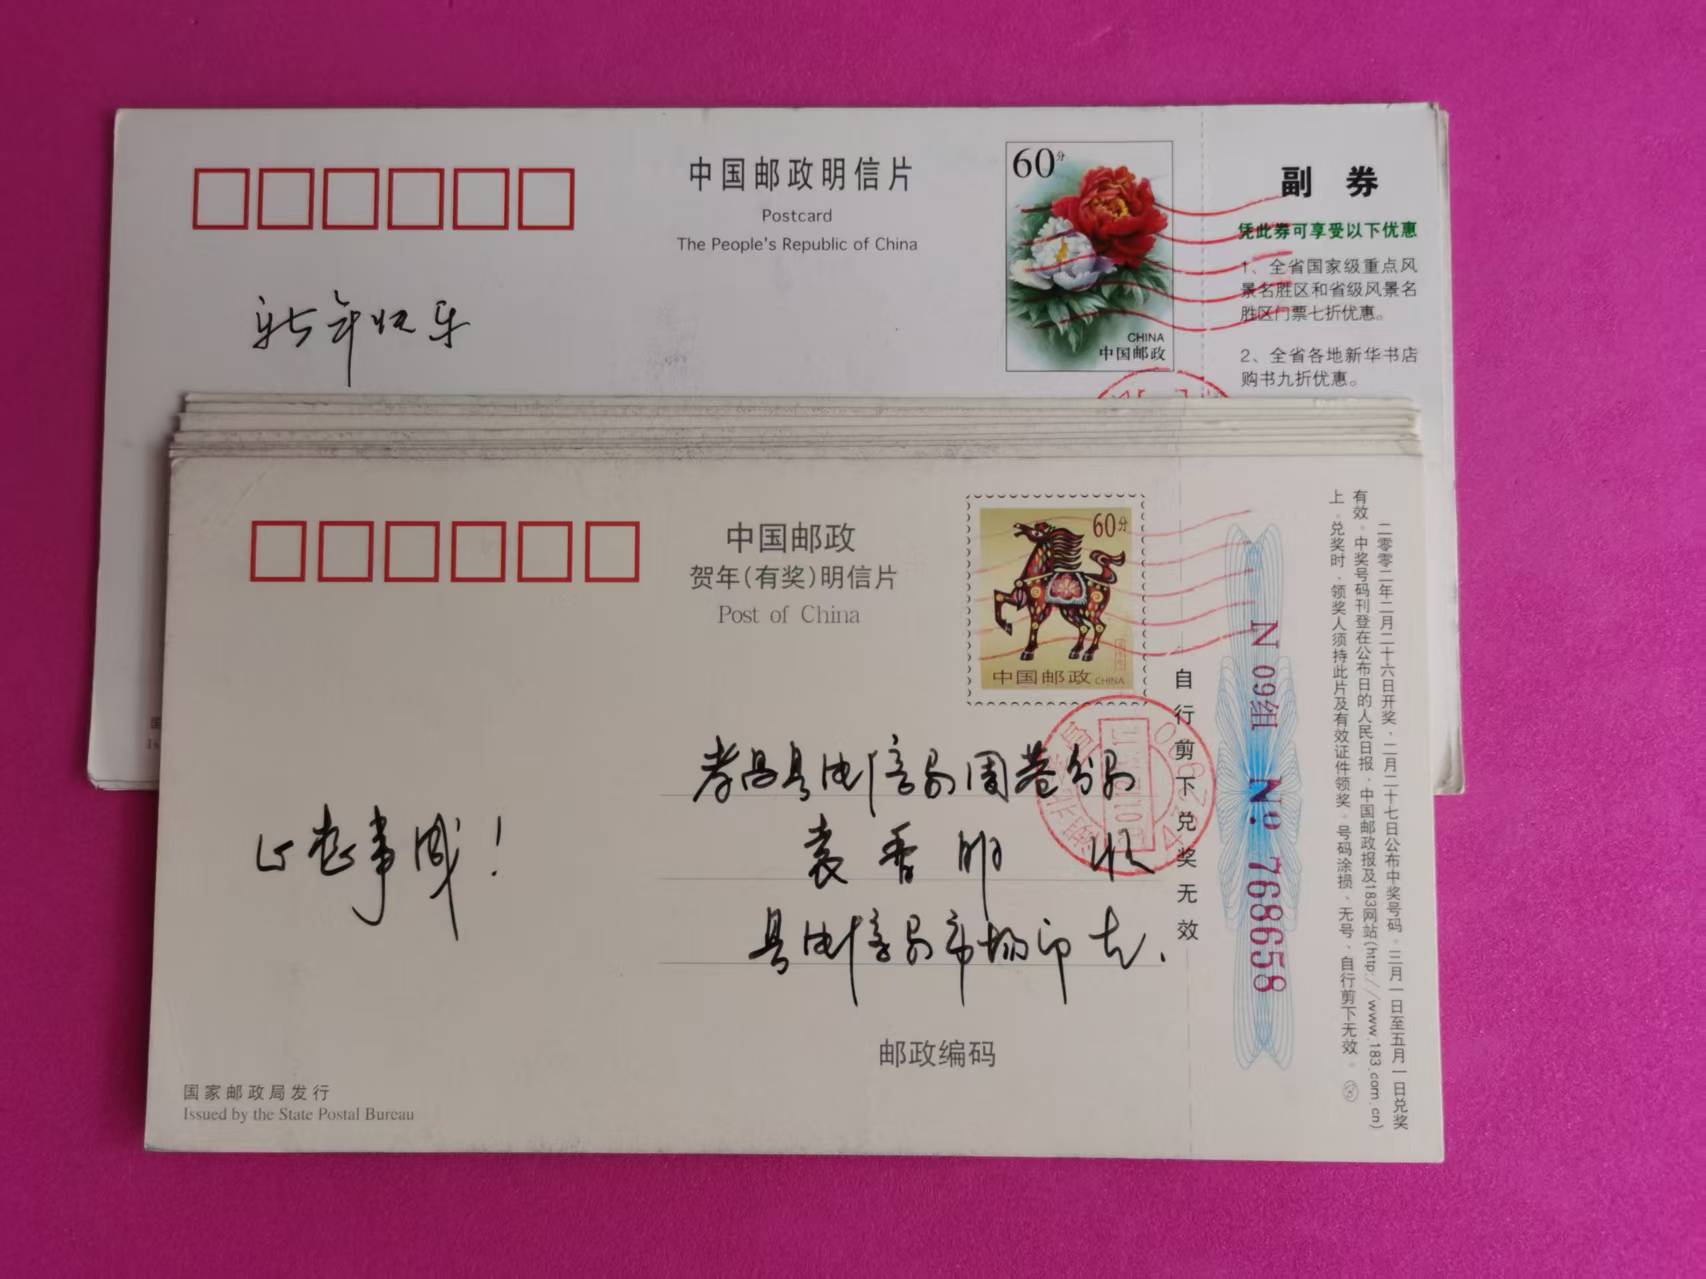 中国邮政明信片
Postcard
The People's Republic of China
60分
CHINA
中国邮政
副 券
凭此券可享受以下优惠
1、全省国家级重点风
景名胜区和省级风景名
胜区门票七折优惠。
2、全省各地新华书店
购书九折优惠。
新年快乐
中国邮政
贺年(有奖)明信片
Post of China
60分
中国邮政 CHINA
自行剪下兑奖无效
N 09组 No 768658
二零零二年二月二十六日开奖,二月二十七日公布中奖号码。三月一日至五月一日兑奖
有效。中奖号码刊登在公布日的人民日报、中国邮政报及183网站(http://www.183.com.cn)
上。兑奖时,领奖人须持此片及有效证件领奖。号码涂损、无号,自行剪下无效。
孝昌县电信局周巷分局
袁香明 收
心想事成!
县电信局市场部
邮政编码
国家邮政局发行
Issued by the State Postal Bureau